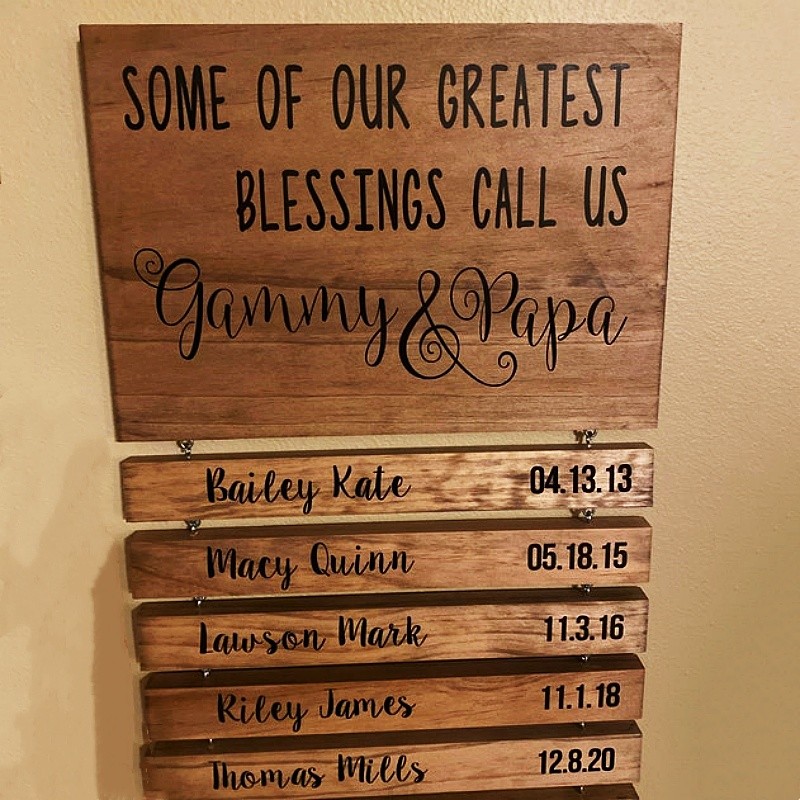 SOME OF OUR GREATEST
BLESSINGS CALL US
Gammy & Papa
Bailey Kate 04.13.13
Macy Quinn 05.18.15
Lawson Mark 11.3.16
Riley James 11.1.18
Thomas Mills 12.8.20